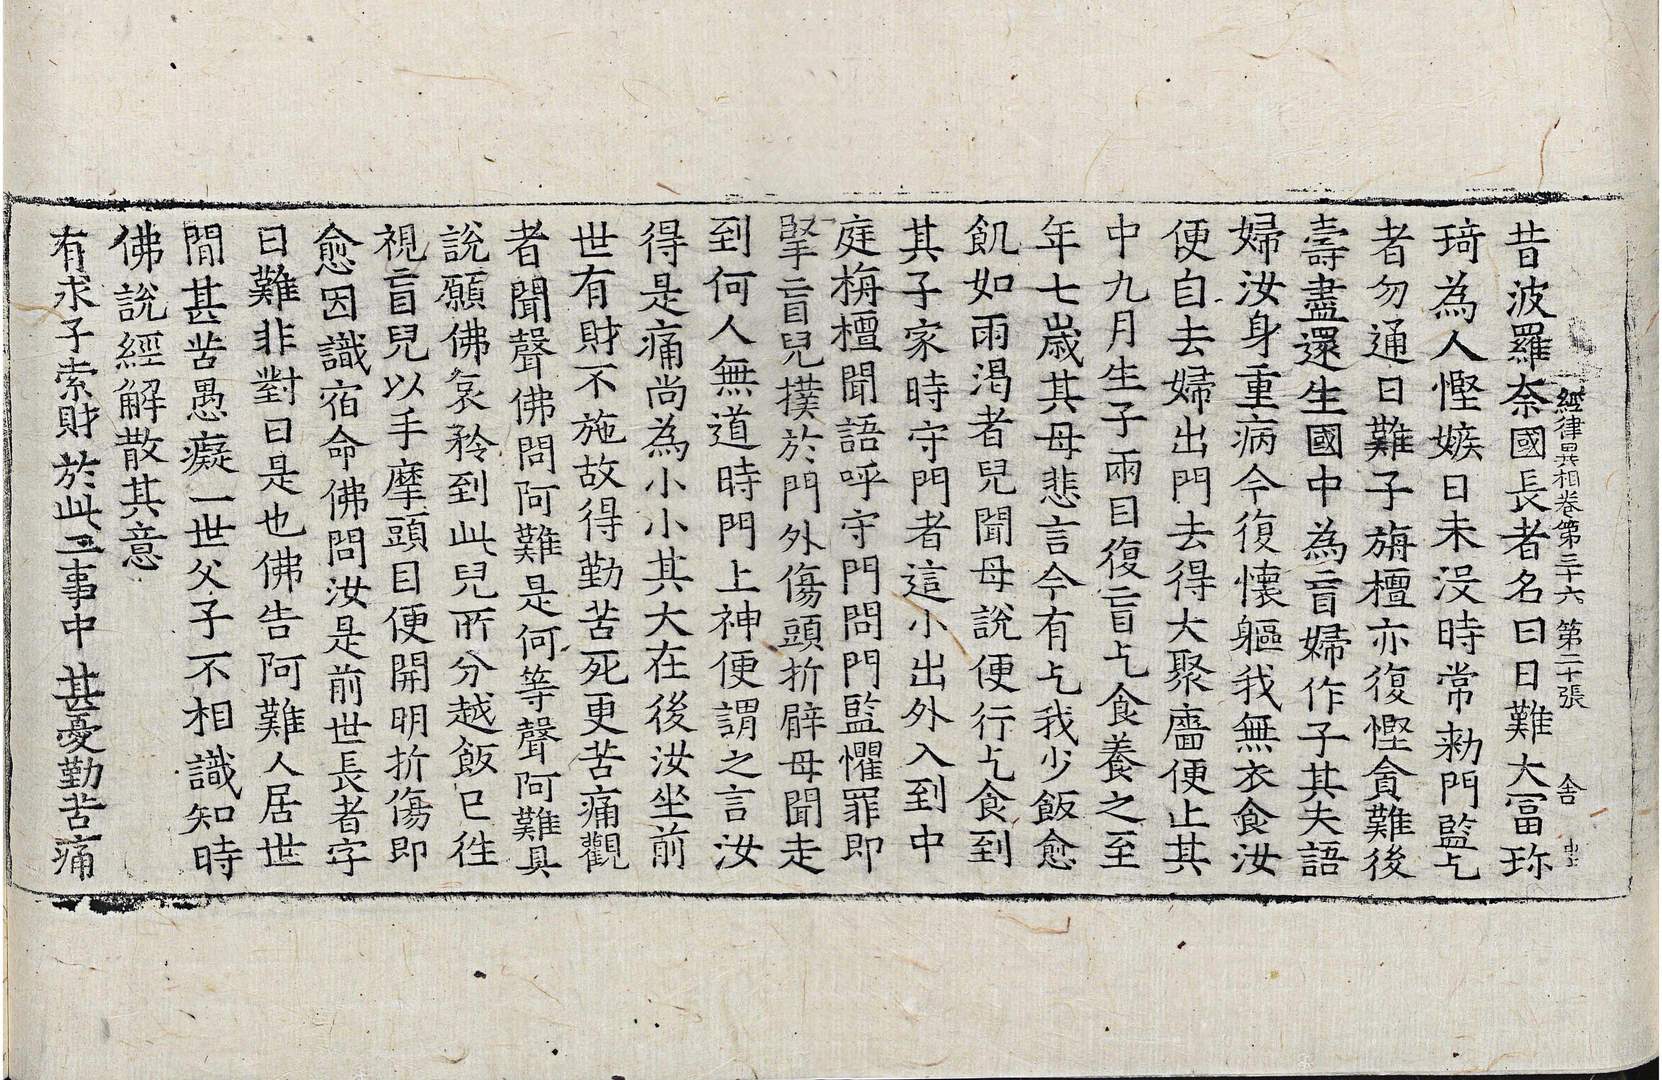 經律異相卷第三十六 第二十張 舍
昔波羅奈國長者名曰日難大冨珎
琦為人慳嫉日未没時常勑門監乞
者勿通日難子栴檀亦復慳貪難後
壽盡還生國中為盲婦作子其夫語
婦汝身重病今復懷軀我無衣食汝
便自去婦出門去得大聚廧便止其
中九月生子兩目復盲乞食養之至
年七歲其母悲言今有乞我少飯愈
飢如雨渴者兒聞母說便行乞食到
其子家時守門者這小出外入到中
庭栴檀聞語呼守門問門監懼罪即
掔盲兒撲於門外傷頭折臂母聞走
到何人無道時門上神便謂之言汝
得是痛尚為小小其大在後汝坐前
世有財不施故得勤苦死更苦痛觀
者聞聲佛問阿難是何等聲阿難具
說願佛哀矜到此兒所分越飯已徃
視盲兒以手摩頭目便開明折傷即
愈因識宿命佛問汝是前世長者字
日難非對曰是也佛告阿難人居世
間甚苦愚癡一世父子不相識知時
佛說經解散其意
有求子索財於此二事中甚憂勤苦痛